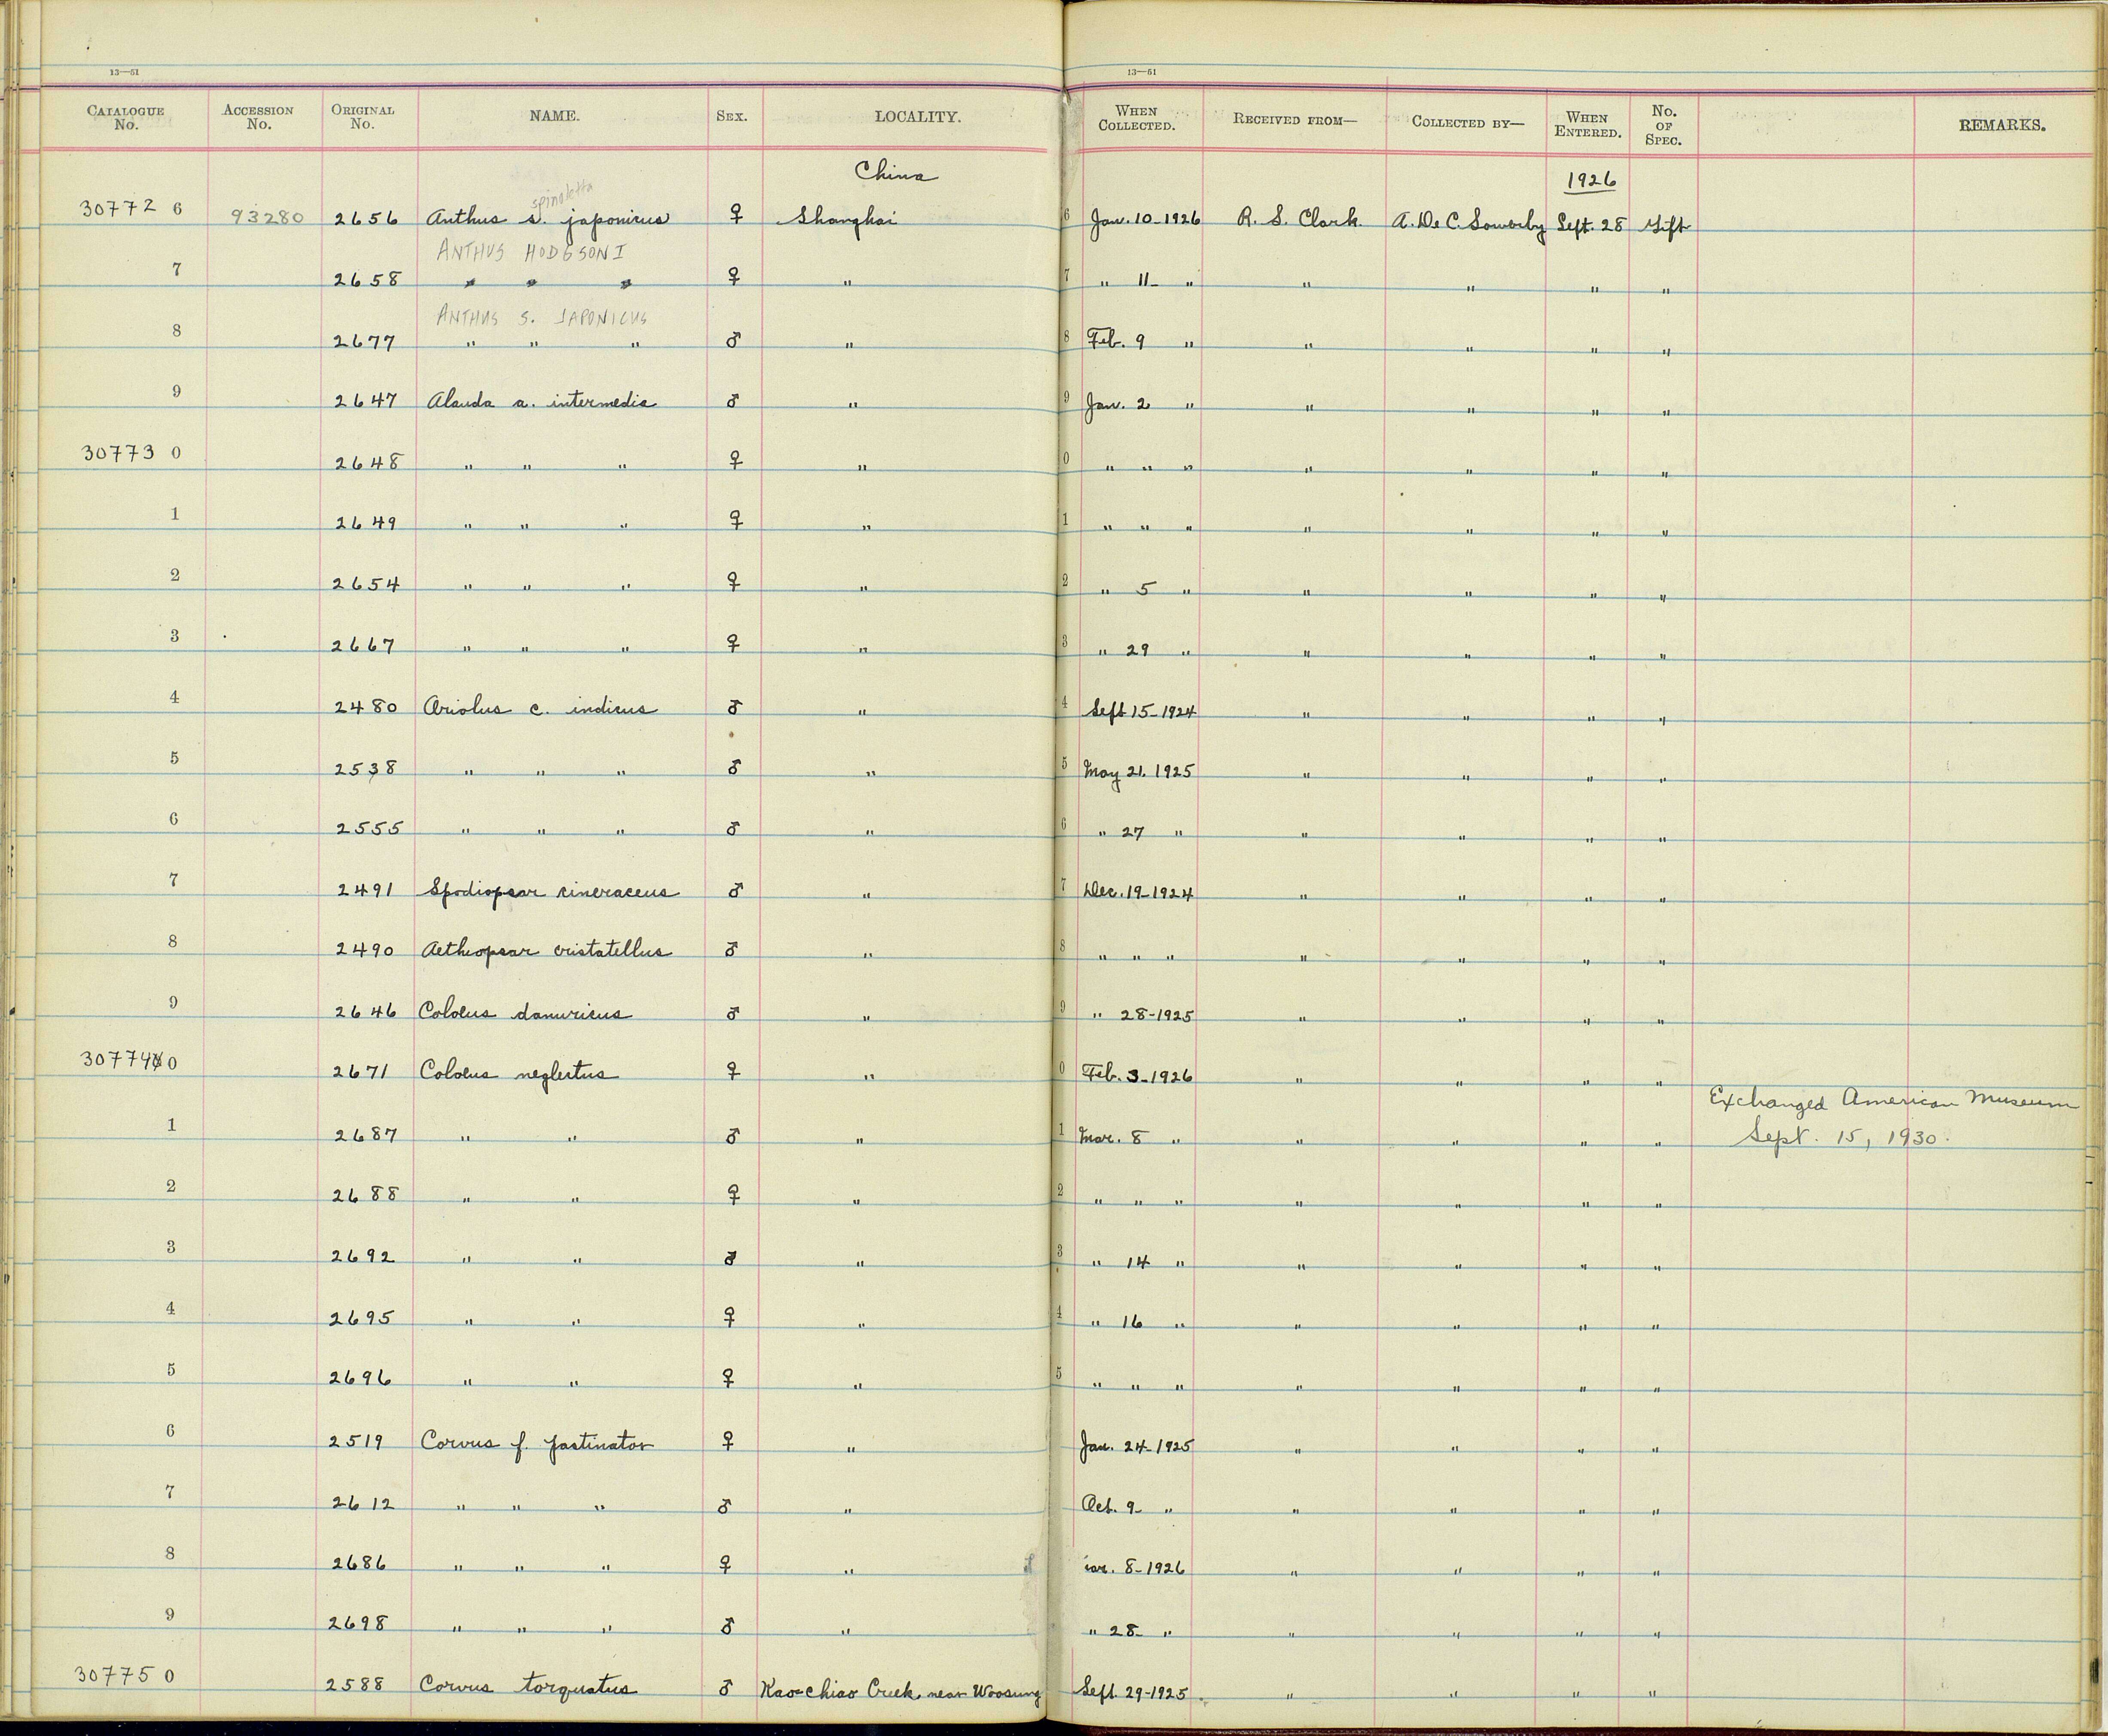 13—51 13—51
CATALOGUE No. ACCESSION No. ORIGINAL No. NAME. SEX. LOCALITY. WHEN COLLECTED. RECEIVED FROM— COLLECTED BY— WHEN ENTERED. No. OF SPEC. REMARKS.
China 1926
spinoletta
30772 6 93280 2656 Anthus s. japonicus ♀ Shanghai 6 Jan. 10-1926 R. S. Clark. A. De C. Sowerby Sept. 28 Gift
ANTHUS HODGSONI
7 2658 " " " ♀ " 7 " 11- " " " " "
ANTHUS S. JAPONICUS
8 2677 " " " ♂ " 8 Feb. 9 " " " " "
9 2647 Alauda a. intermedia ♂ " 9 Jan. 2 " " " " "
30773 0 2648 " " " ♀ " 0 " " " " " " "
1 2649 " " " ♀ " 1 " " " " " " "
2 2654 " " " ♀ " 2 " 5 " " " " "
3 2667 " " " ♀ " 3 " 29 " " " " "
4 2480 Oriolus c. indicus ♂ " 4 Sept 15-1924 " " " "
5 2538 " " " ♂ " 5 May 21. 1925 " " " "
6 2555 " " " ♂ " 6 " 27 " " " " "
7 2491 Spodiopsar cineraceus ♂ " 7 Dec. 19-1924 " " " "
8 2490 Aetheopsar cristatellus ♂ " 8 " " " " " " "
9 2646 Coloeus dauuricus ♂ " 9 " 28-1925 " " " "
30774 0 2671 Coloeus neglectus ♀ " 0 Feb. 3-1926 " " " "
Exchanged American Museum
1 2687 " " ♂ " 1 Mar. 8 " " " " " Sept. 15, 1930.
2 2688 " " ♀ " 2 " " " " " " "
3 2692 " " ♂ " 3 " 14 " " " " "
4 2695 " " ♀ " 4 " 16 " " " " "
5 2696 " " ♀ " 5 " " " " " " "
6 2519 Corvus f. pastinator ♀ " Jan. 24-1925 " " " "
7 2612 " " " ♂ " Oct. 9- " " " " "
8 2686 " " " ♀ " ar. 8-1926 " " " "
9 2698 " " " ♂ " " 28- " " " " "
30775 0 2588 Corvus torquatus ♂ Kao-chiao Creek, near Woosung Sept. 29-1925 " " " "